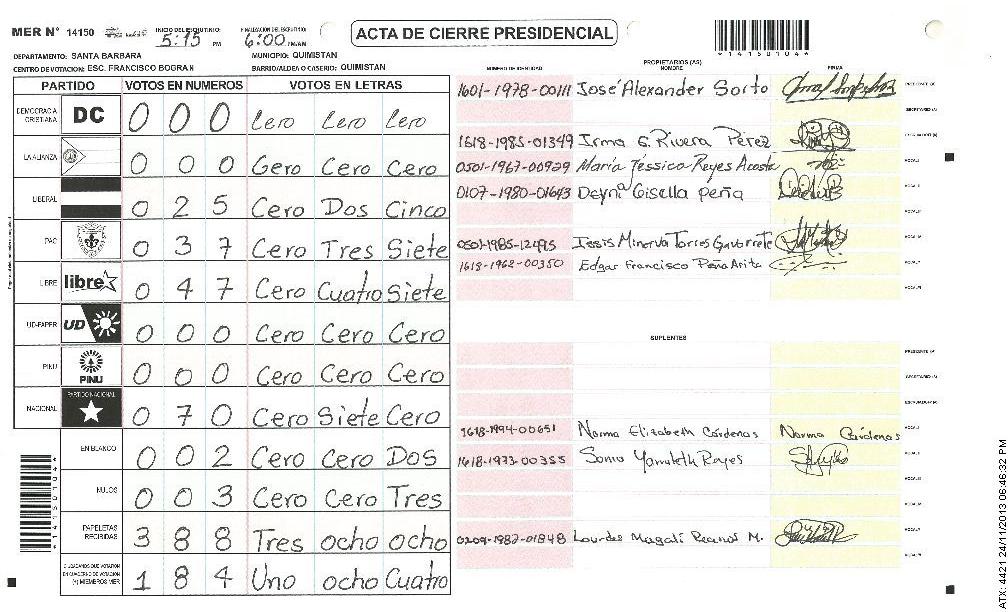 MER N° 14150 INICIO DEL ESCRUTINIO: 5:15 PM FINALIZACION DEL ESCRUTINIO: 6:00 PM/AM
ACTA DE CIERRE PRESIDENCIAL
DEPARTAMENTO: SANTA BARBARA MUNICIPIO: QUIMISTAN
CENTRO DE VOTACION: ESC. FRANCISCO BOGRAN BARRIO/ALDEA O CASERIO: QUIMISTAN
PARTIDO VOTOS EN NUMEROS VOTOS EN LETRAS
DEMOCRACIA CRISTIANA DC 0 0 0 Cero Cero Cero
LA ALIANZA 0 0 0 Cero Cero Cero
LIBERAL 0 2 5 Cero Dos Cinco
PAC 0 3 7 Cero Tres Siete
LIBRE libre 0 4 7 Cero Cuatro Siete
UD-FAPER UD 0 0 0 Cero Cero Cero
PINU PINU 0 0 0 Cero Cero Cero
NACIONAL PARTIDO NACIONAL 0 7 0 Cero Siete Cero
EN BLANCO 0 0 2 Cero Cero Dos
NULOS 0 0 3 Cero Cero Tres
PAPELETAS RECIBIDAS 3 8 8 Tres ocho ocho
CIUDADANOS QUE VOTARON EN CUADERNO DE VOTACION (+) MIEMBROS MER 1 8 4 Uno ocho Cuatro
*14150104*
PROPIETARIOS (AS)
NUMERO DE IDENTIDAD NOMBRE FIRMA
1601-1978-00111 José Alexander Sorto
1618-1985-01349 Irma G. Rivera Pérez
0501-1967-00929 María Jessica Reyes Acosta
0107-1980-01643 Deyna Gisella Peña
0501-1985-12495 Iessis Minerva Torres
1618-1962-00350 Edgar Francisco Peña Arita
SUPLENTES
1618-1994-00651 Norma Elizabeth Cárdenas Norma Cárdenas
1618-1973-00355 Sonia Yamileth Reyes
0209-1982-01848 Lourdes Magali M.
ATX: 4421 24/11/2013 06:46:32 PM